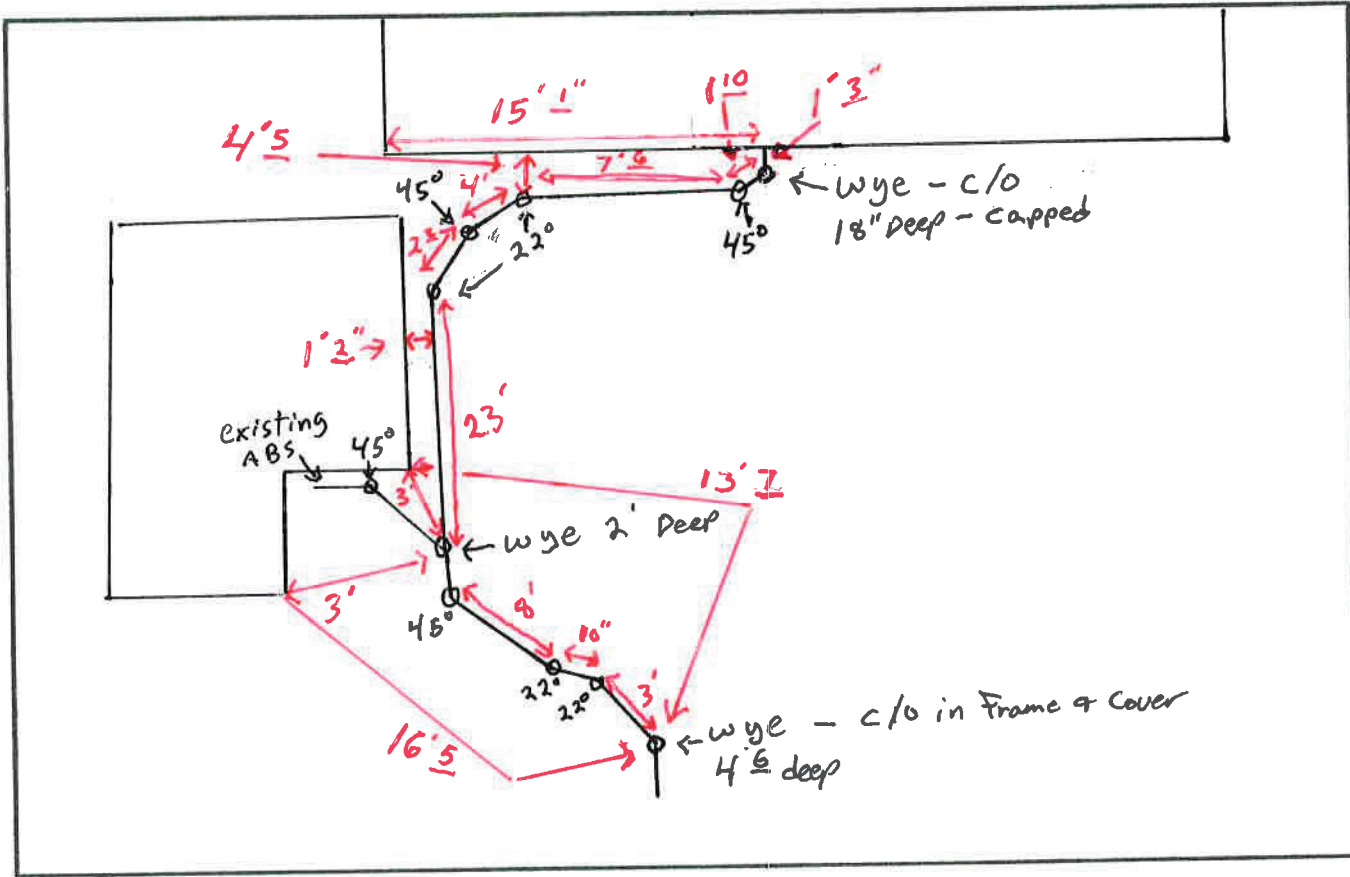 15' 1"
1 10
1' 3"
4' 5
7' 6
45°
4'
wye - c/o
18" Deep - capped
45°
22°
1' 2"
23'
existing
ABS
45°
3'
13' 7
wye 2' Deep
3'
8'
45°
10"
22°
22°
3'
wye - c/o in Frame & Cover
4' 6 deep
16' 5